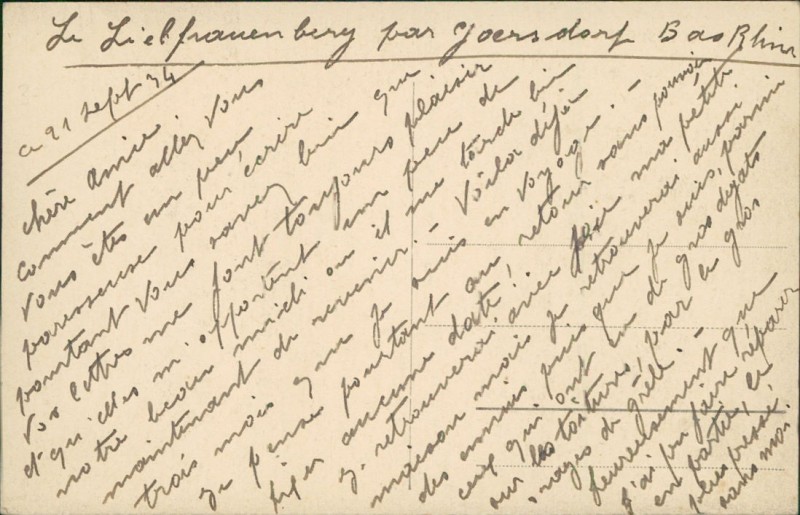 Le Liebfrauenberg par Goersdorf Bas Rhin
ce 21 sept 34
chère Amie.
comment allez vous
vous êtes un peu
paresseuse pour écrire
pourtant vous savez bien que
vos lettres me font toujours plaisir
et qu'elles m'apportent un peu de
notre beau midi où il me tarde bien
maintenant de revenir. – Voilà déjà
trois mois que je suis en voyage. –
je pense pourtant au retour sans pouvoir
fixer aucune date!
j'y retrouverai avec joie ma petite
maison mais je retrouverai aussi
des ennuis puisque je suis, parmi
ceux qui ont eu de gros dégats
sur les toitures, par le gros
orages de grêle. –
heureusement que
j'ai pu faire réparer
en partie, le
plus pressé,
sans moi